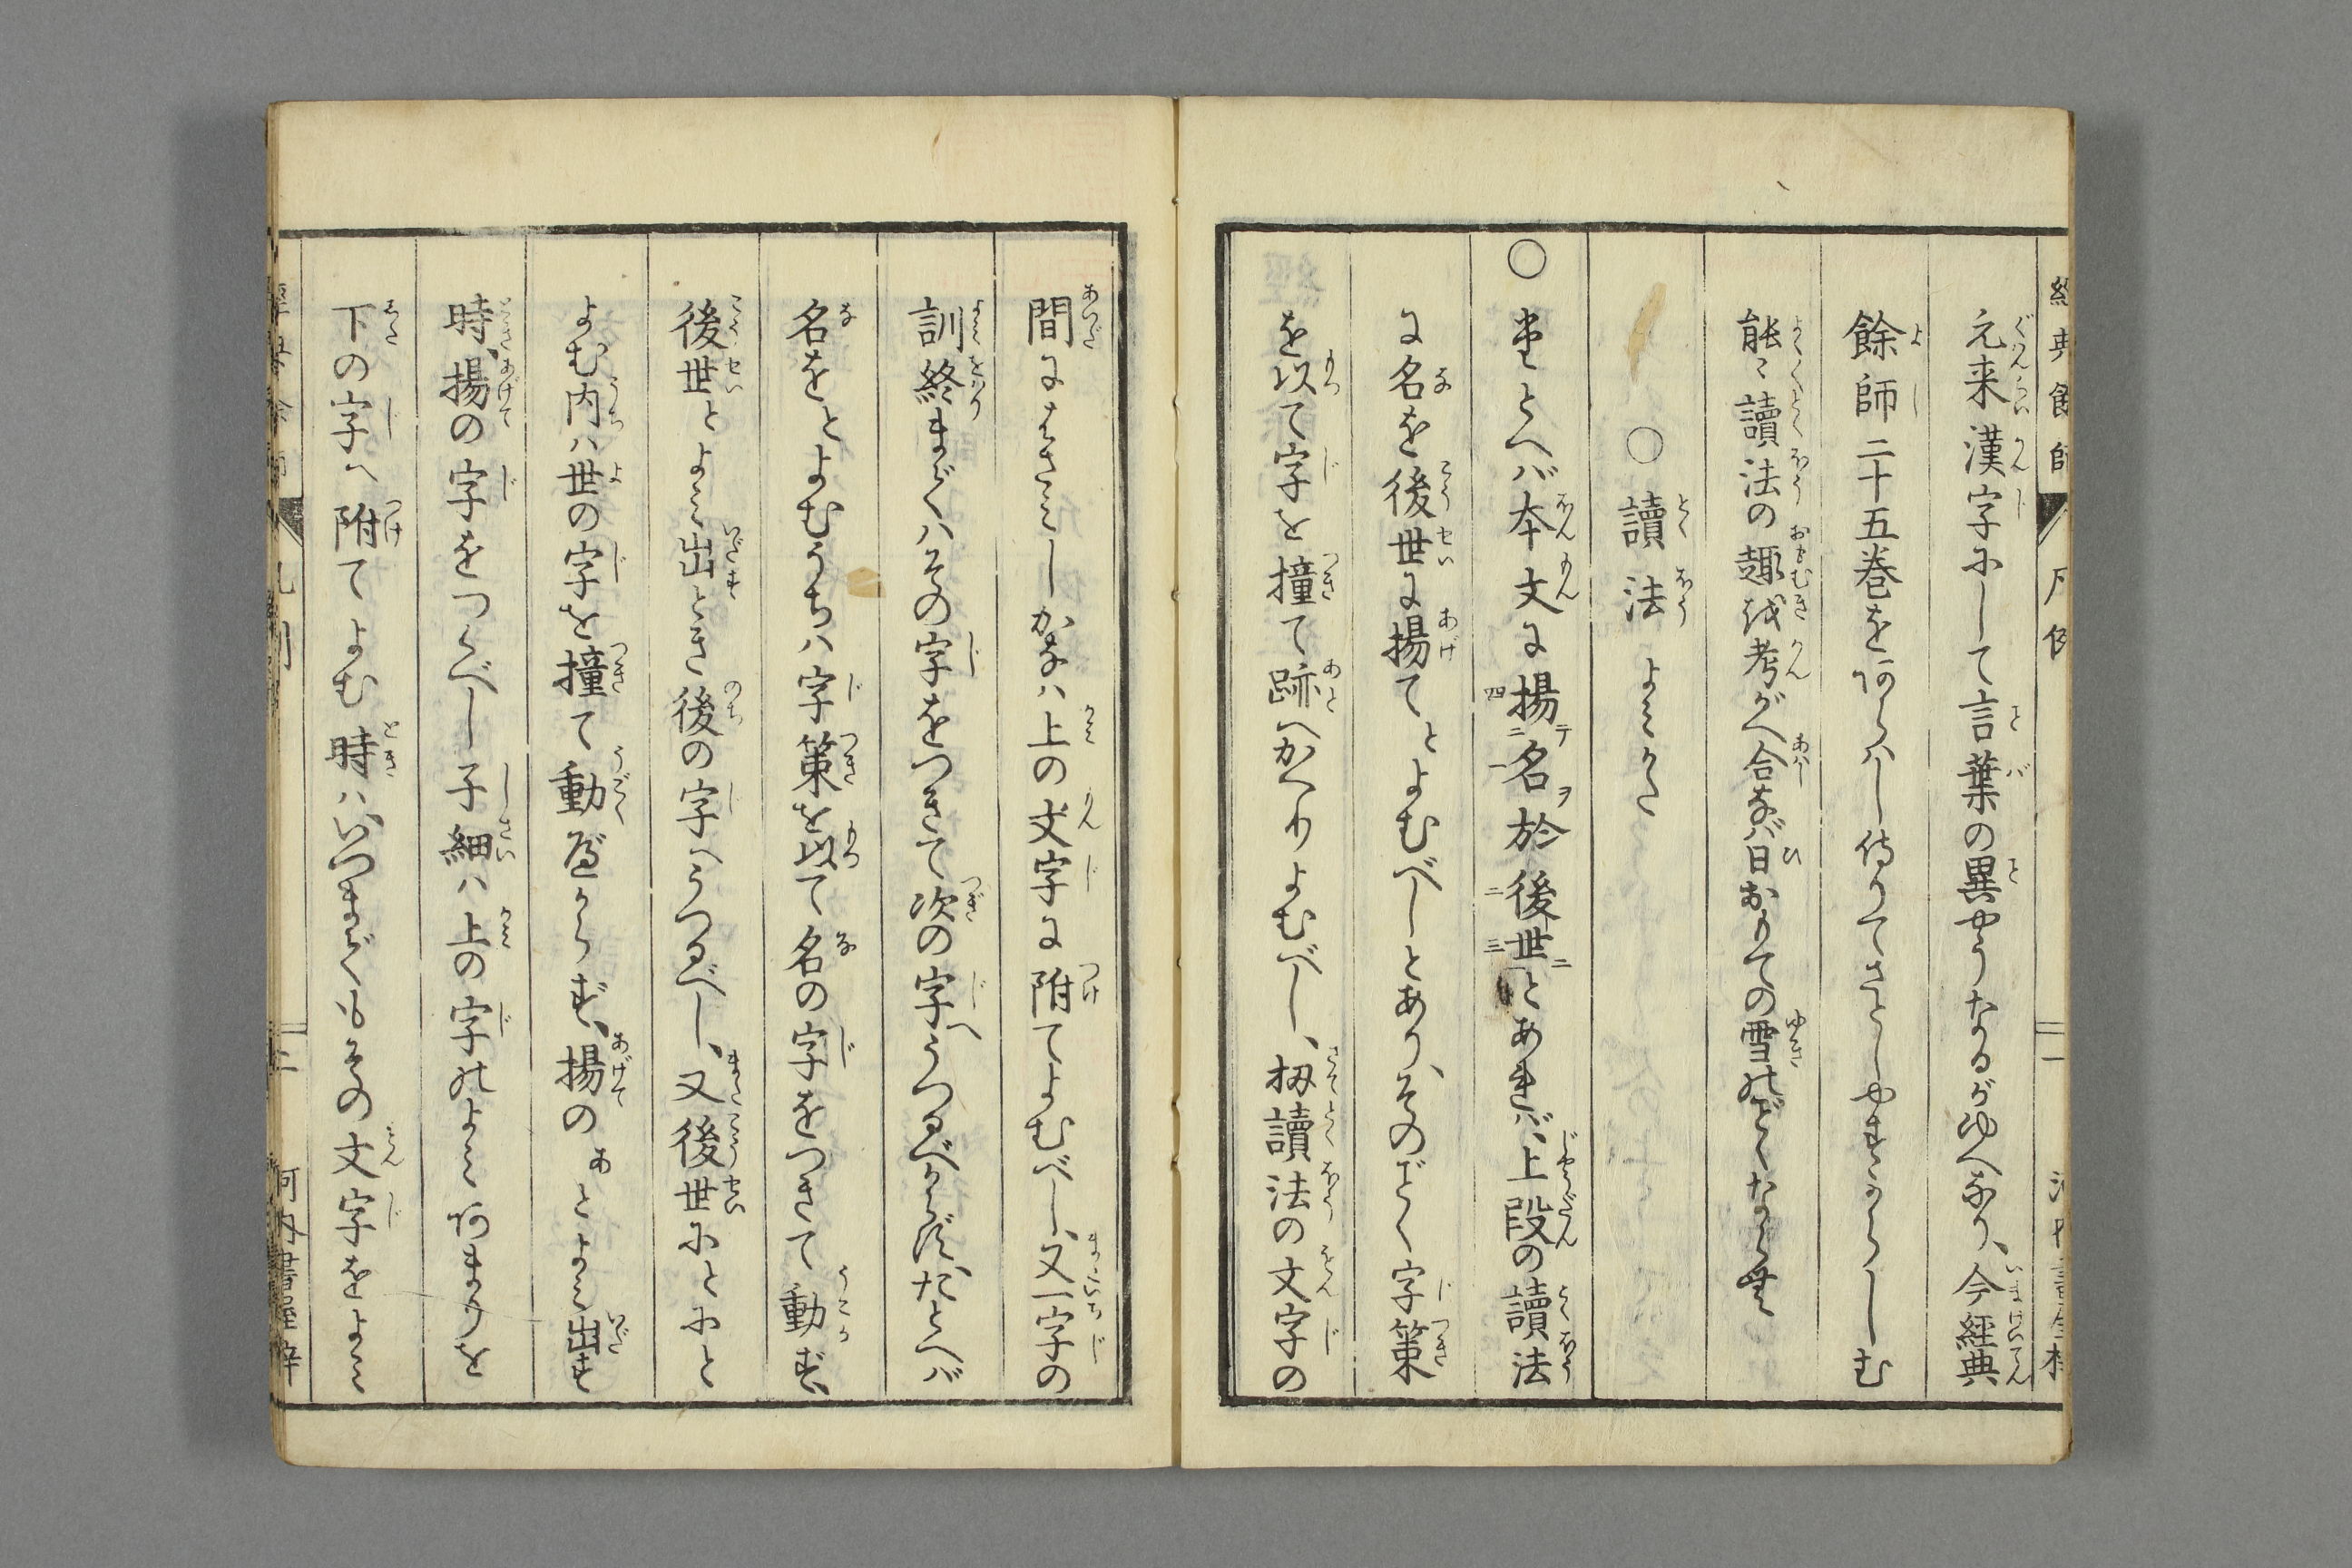 元来漢字にして言葉の異やうなるがゆへなり、今經典
餘師二十五巻をあらハし侍りてさとしやすからしむ
能〻讀法の趣を考がへ合なバ日おりての雪のごとくならむ
〇讀法よみかた
〇堂とへバ本文に揚テ名ヲ於後世ニとあれバ、上段の讀法
に名を後世に揚てとよむべしとあり、そのごとく字策
を以て字を撞て跡へかへりよむべし、扨讀法の文字の
間にはさみしかなハ上の文字に附てよむべし、又一字の
訓終まではその字をつきて次の字へうつるべからず、たとへバ
名をとよむうちハ字策を以て名の字をつきて動ず、
後世とよみ出とき後の字へうつるべし、又後世にとにと
よむ内ハ世の字を撞て動べからず、揚のあとよみ出す
時、揚の字をつくべし子細ハ上の字のよみあまりを
下の字へ附てよむ時ハ、いつまでもその文字をよみ